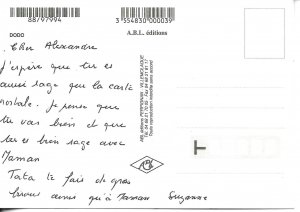 88/97994
3 554830 000039
DODO
A.B.L. éditions
Cher Alexandre
J'espère que tu es
aussi sage que la carte
postale. Je pense que
tu vas bien et que
tu es bien sage avec
Maman
Tata te fais de gros
bisous ainsi qu'à Maman Suzanne
T